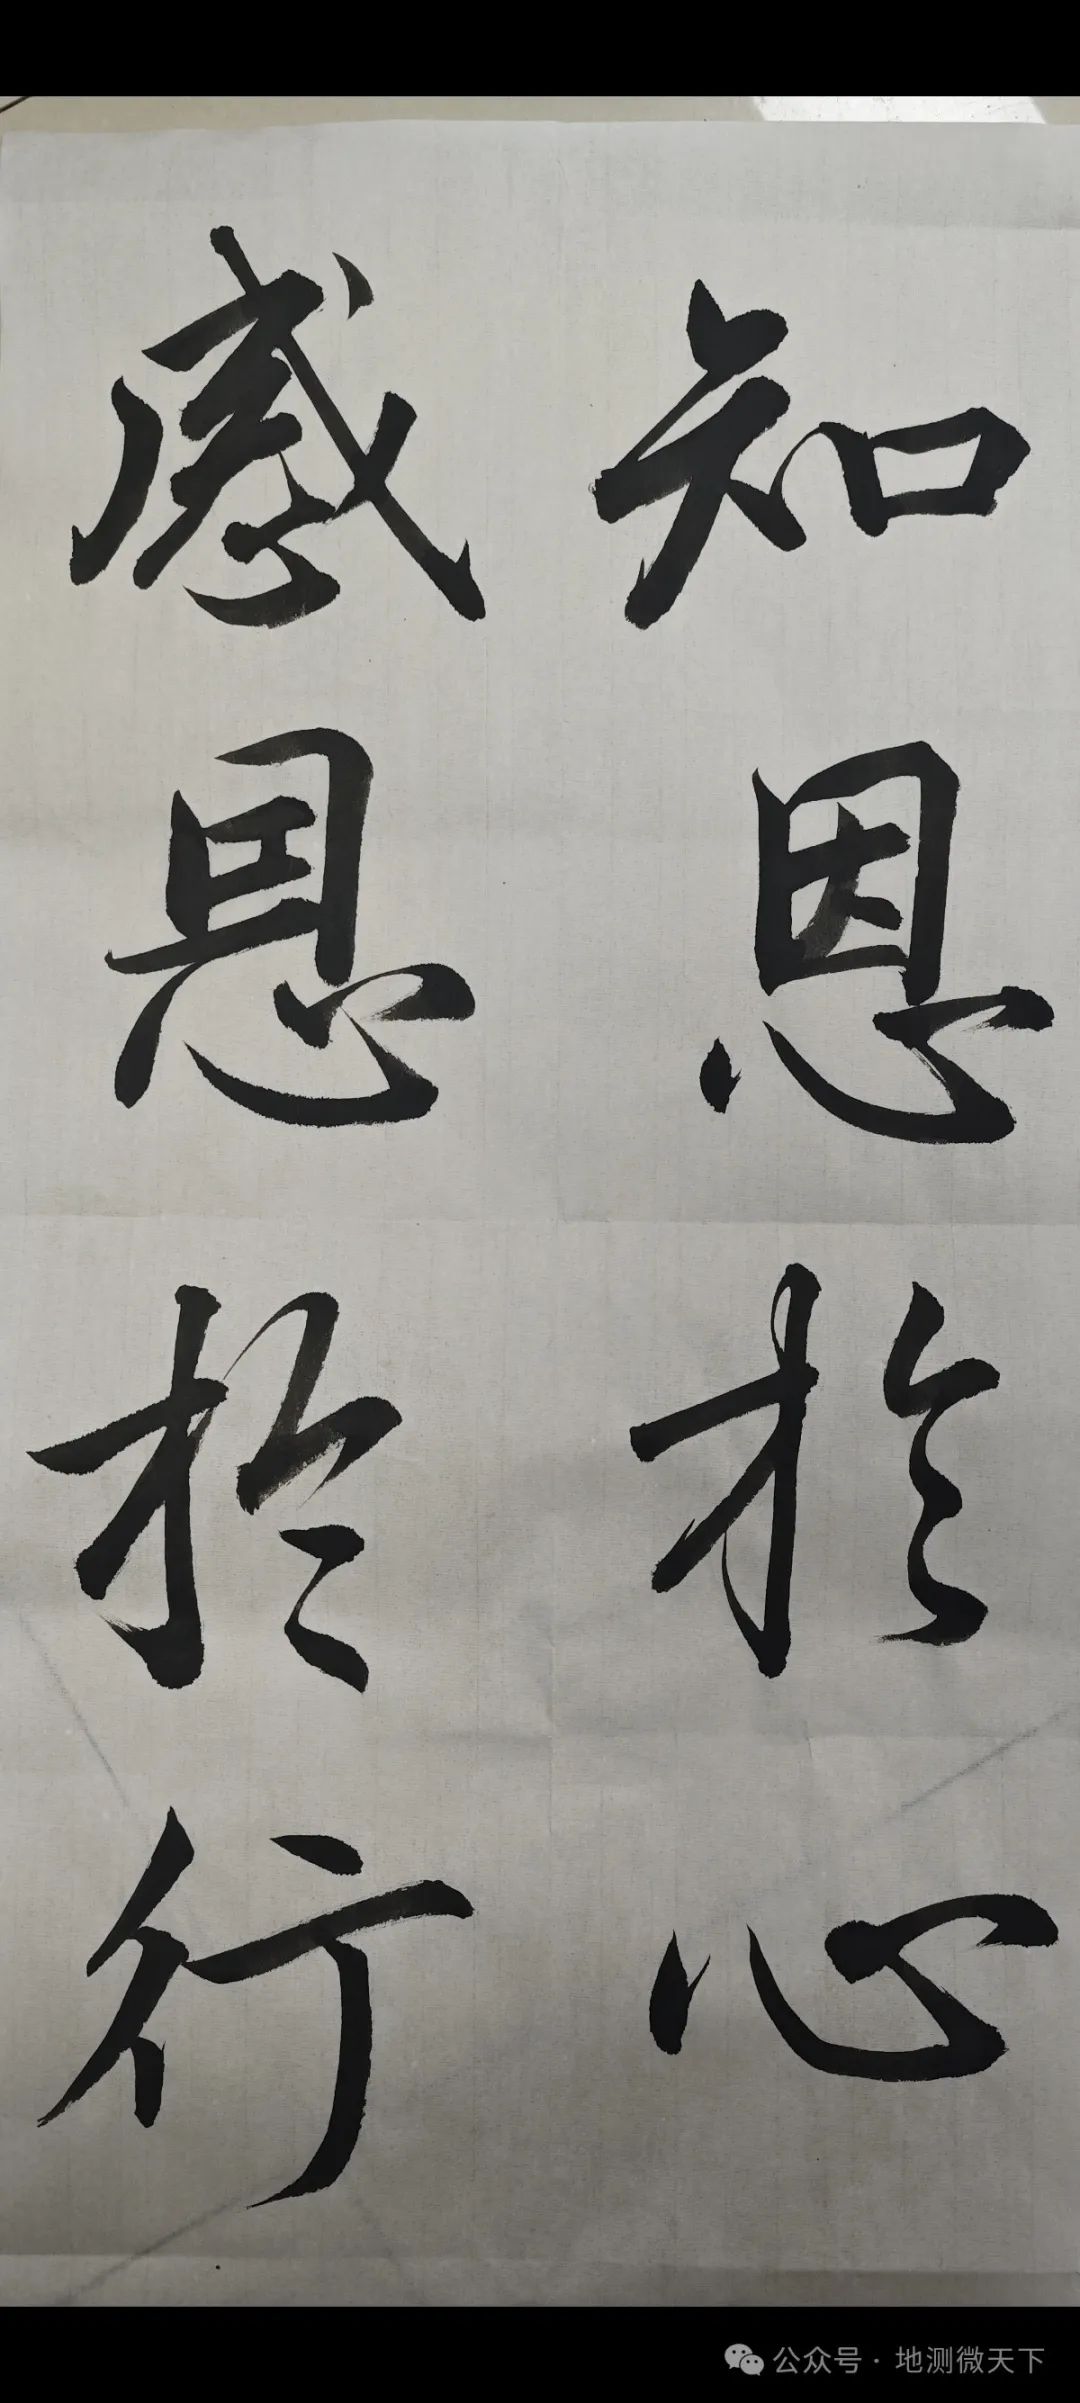 知恩於心
感恩於行
公众号·地测微天下